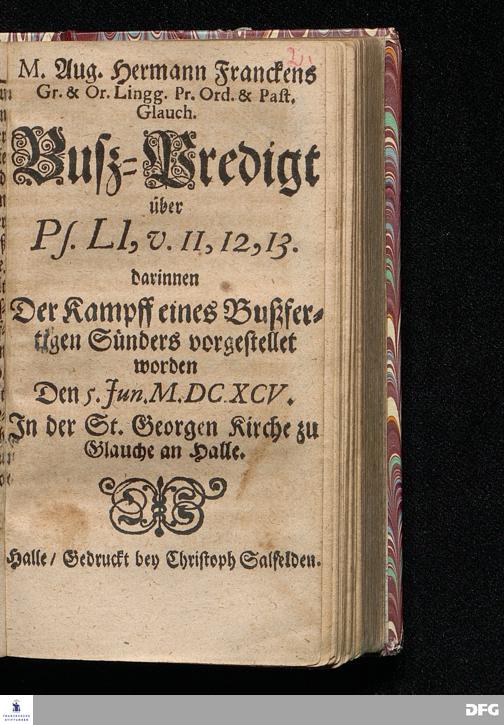 M. Aug. Hermann Franckens
Gr. & Or. Lingg. Pr. Ord. & Past.
Glauch.
Busz-Predigt
über
Ps. LI, v. 11, 12, 13.
darinnen
Der Kampff eines Bußfer-
tigen Sünders vorgestellet
worden
Den 5. Jun. M.DC.XCV.
In der St. Georgen Kirche zu
Glauche an Halle.
Halle / Gedruckt bey Christoph Salfelden.
FRANCKESCHE
STIFTUNGEN
DFG